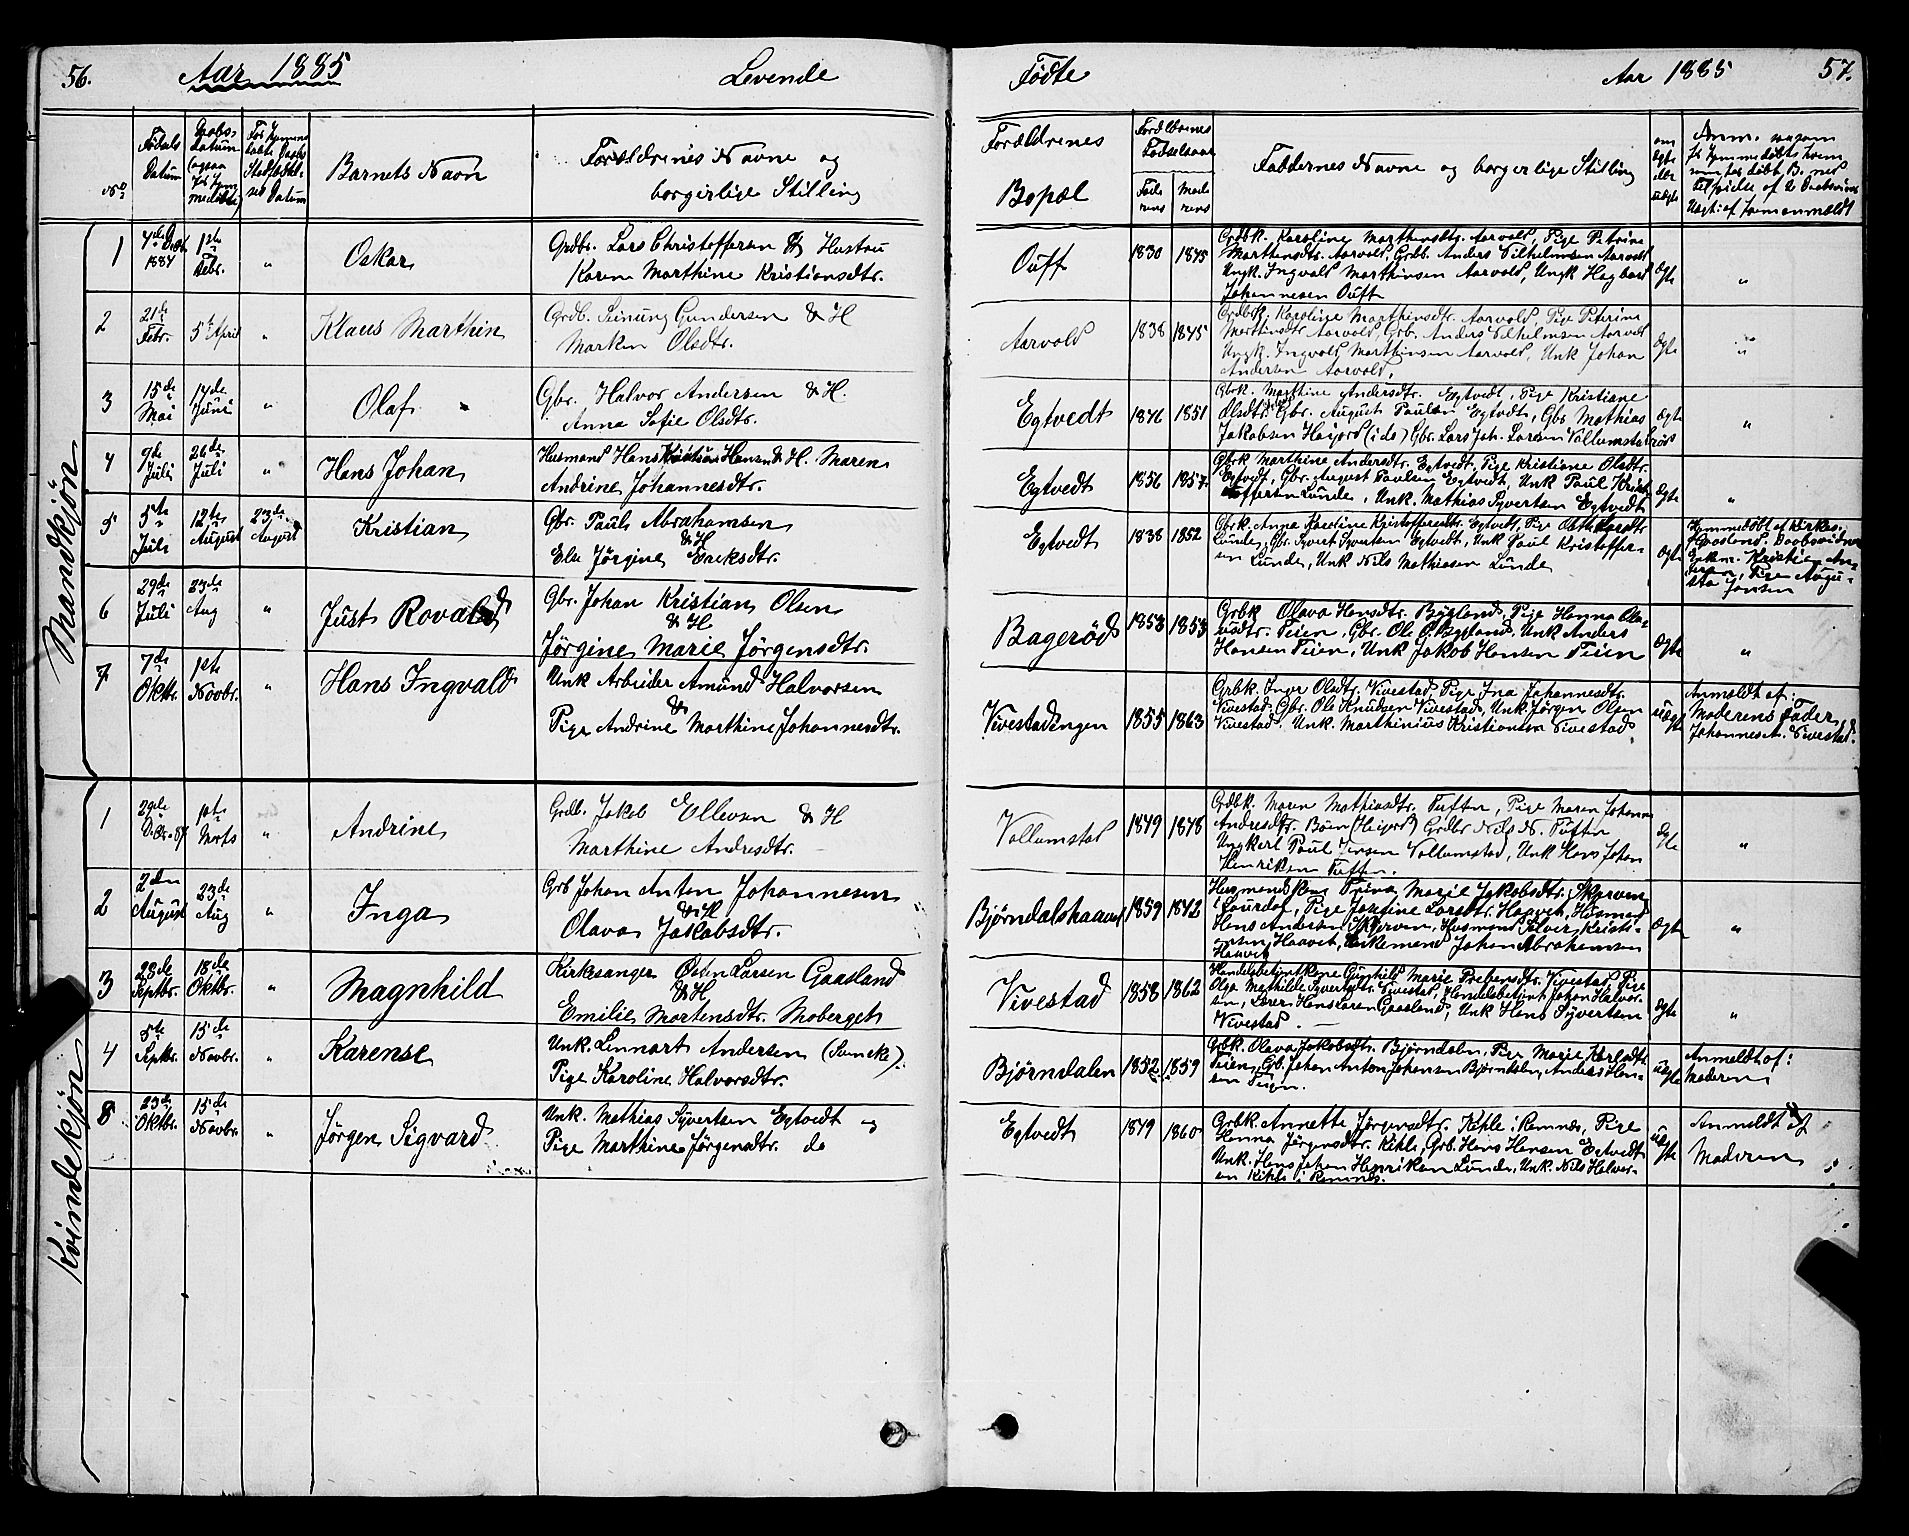 56. Aar 1885 Levende
Födte Aar 1885 57.
No
Födsels Datum
Daabs Datum (ogsaa for hjemmedöbte)
Barnets Navn
Forældrenes Navne og
borgerlige Stilling
Forældrenes
Bopæl
Forældrenes Födselsaar
Faderens Moderens
Faddernes Navne og borgerlige Stilling
om ægte eller uægte
Mandkjön
1 1884 1ste Febr. " Oskar
Grdbr. Lars Christoffersen & Hustru
Karen Marthine Kristiansdtr.
Ouff 1830 1845
Grdbk. Karoline Marthinsdtr. Aarvold, Pige Petrine
Marthinsdtr. Aarvold, Grdb. Anders Vilhelmsen Aarvold
Ungk. Ingvald Marthinsen Aarvold, Ungk Hagbart
Johannesen Ouff
ægte "
2 21de Febr. 5te April " Klaus Marthin
Grdb. Gundersen & H
Maren Olsdtr.
Aarvold 1838 1845
Grdbk. Karoline Marthinsdtr. Aarvold, Pige Petrine
Marthinsdtr Aarvold, Grb. Anders Vilhelmsen Aarvold
Ungk. Ingvald Marthinsen Aarvold, Unk Johan
Andersen Aarvold,
ægte "
3 15de Mai 14de Juni " Olaf
Gbr. Halvor Andersen & H.
Anna Sofie Olsdtr.
Egtvedt 1846 1851
Gbrk. Marthine Andersdtr. Egtvedt, Pige Kristiane
Olsdtr. Gbr. August Paulsen Egtvedt, Gbr Mathias
Jakobsen Gbr. Lars Joh. Larsen Vollumstad
ægte "
4 9de Juli 26de Juli " Hans Johan
Husmand Hans Kristian Hansen & H. Maren
Andrine Johannesdtr.
Egtvedt 1856 1857
Gbrk Marthine Andersdtr. Egtvedt, Pige Kristiane Olsdtr.
Egtvedt, Gbr. August Paulsen Egtvedt, Unk Paul Kristoffersen
Lunde, Unk. Mathias Syvertsen Egtvedt
ægte "
5 5te Juli 12te August 23de August Kristian
Gbr. Paul Abrahamsen
& H
Else Jörgine Eriksdtr.
Egtvedt 1838 1852
Gbrk. Anna Karoline Kristoffersdtr. Egtvedt, Pige
Lunde, Gbr. Syvert Syvertsen Egtvedt, Unk Paul Kristoffersen
Lunde, Unk Nils Mathiasen Lunde
ægte
Hjemmedöbt af Kirkes.
Gaasland. Daabsvidner
Kristian
Pige Augusta
Jansen
6 29de Juli 23de Aug " Just Rovald
Gbr. Johan Kristian Olsen
& H
Jörgine Marie Jörgensdtr.
Bageröd 1853 1853
Grbk Olava Hansdtr. Bygland, Pige Hanna Olausdtr.
Teien, Gbr. Ole O. Bygland, Unk Anders
Hansen Teien, Unk Jakob Hansen Teien
ægte "
7 7de Oktbr. 1ste Novbr. " Hans Ingvald
Unk Arbeider Amund Halvorsen
&
Pige Andrine Marthine Johannesdtr.
Vivestadengen 1855 1863
Grbk. Inger Olsdtr. Vivestad, Pige Ina Johannesdtr.
Vivestad, Gbr. Ole Knudsen Vivestad, Unk Jörgen Olsen
Vivestad. Unk. Marthinius Kristiansen Vivestad
uægte
Anmeldt af:
Moderens Fader
Johannes A. Vivestad.
Kvindekjön
1 29de 1ste Marts " Andrine
Grdb. Jakob Ellevsen & H
Marthine Andresdtr.
Vollumstad 1849 1848
Grdbk. Maren Mathiasdtr. Tuften, Pige Maren Johanne
Andresdtr. Böen Grdbr Nils N. Tuften
Ungkarl Paul Jensen Vollumstad, Unk Hans Johan
Henriksen Tuften.
ægte "
2 2den August 23de Aug " Inga
Grb Johan Anton Johannesen
& H
Olava Jakobsdtr.
Bjørndalshaaven 1859 1842
Husmandskone Trine Marie Jakobsdtr. Skjerven
Pige Josefine Larsdtr. Haavet, Husmand
Hans Andersen Skjerven, Husmand Kristiansen
Haavet, Enkemand Johan Abrahamsen
Haavet
ægte "
3 28de Septbr. 18de Oktbr. " Magnhild
Kirkesanger Østen Larsen Gaasland
& H
Emilie Mortensdtr. Moberget
Vivestad 1858 1862
Gunhild Marie Prebensdtr. Vivestad, Pige
Olga Mathilde Syvertsdtr. Vivestad, Johan Halvorsen,
Lærer Hans Larsen Gaasland, Unk Hans Syvertsen
Vivestad.
ægte "
4 Septbr. 15de Novbr. " Karense
Unk. Lennart Andersen
Pige Karoline Halvorsdtr.
Bjørndalen 1852 1859
Grbk. Olava Jakobsdtr. Bjørndalen, Pige Marie Karlsdtr.
Teien, Gb. Johan Anton Johansen Bjørndalen, Anders Hansen
Teien.
uægte
Anmeldt af:
Moderen
8 23de Oktbr. 15de Novbr. " Jörgen Sigvard
Unk. Mathias Syvertsen Egtvedt og
Pige Marthine Jörgensdtr. do
Egtvedt 1849 1860
Grbk. Annette Jörgensdtr. Kihle i Ramnes, Pige
Hanna Jörgensdtr. Kihle, Grb. Hans Hansen Egtvedt
Unk. Hans Johan Henriksen Lunde, Unk. Nils Halvorsen
Kihle i Ramnes.
uægte
Anmeldt af
Moderen